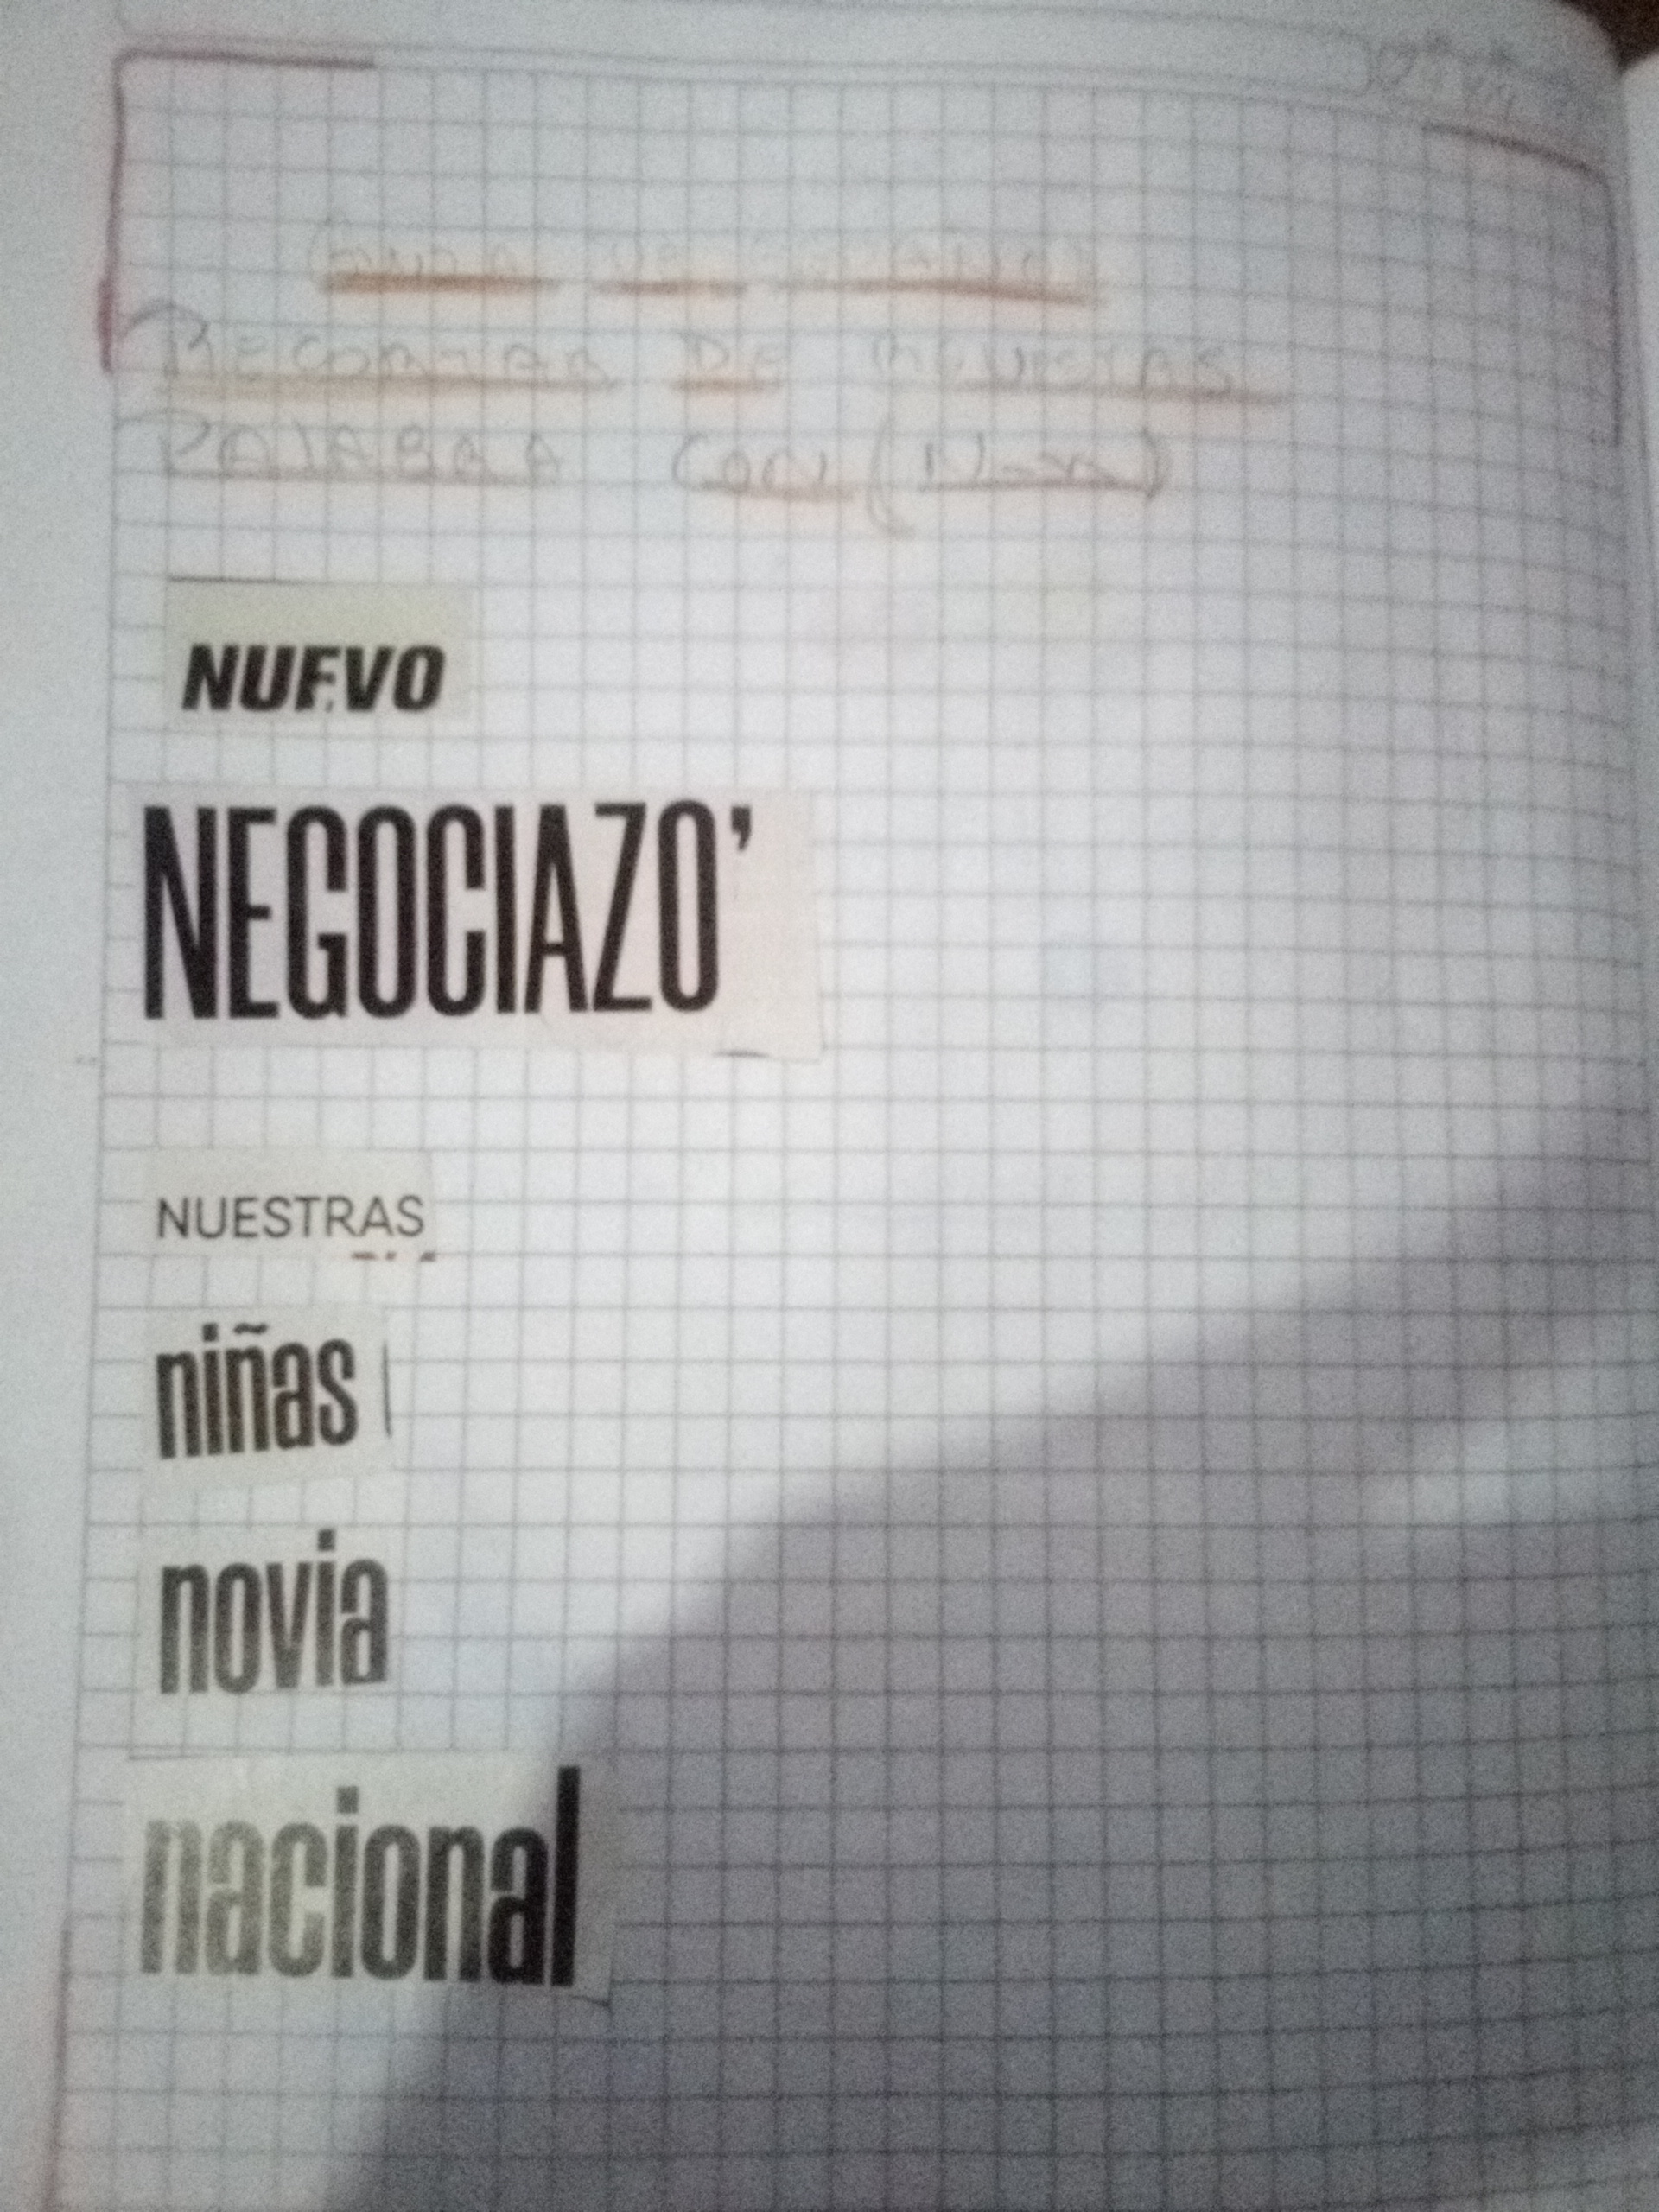 RECORTAR DE REVISTAS
PALABRA CON (N-n)
NUEVO
NEGOCIAZO’
NUESTRAS
niñas
novia
nacional